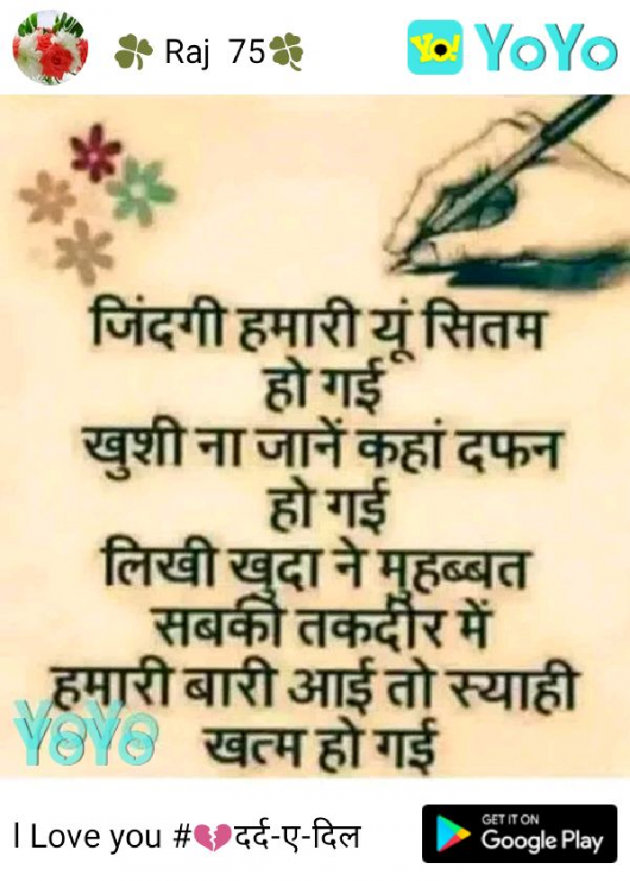 🍀 Raj 75🍀
Yo! YoYo
जिंदगी हमारी यूं सितम
हो गई
खुशी ना जानें कहां दफन
हो गई
लिखी खुदा ने मुहब्बत
सबकी तकदीर में
हमारी बारी आई तो स्याही
खत्म हो गई
YOYO
I Love you #💔दर्द-ए-दिल
GET IT ON
Google Play